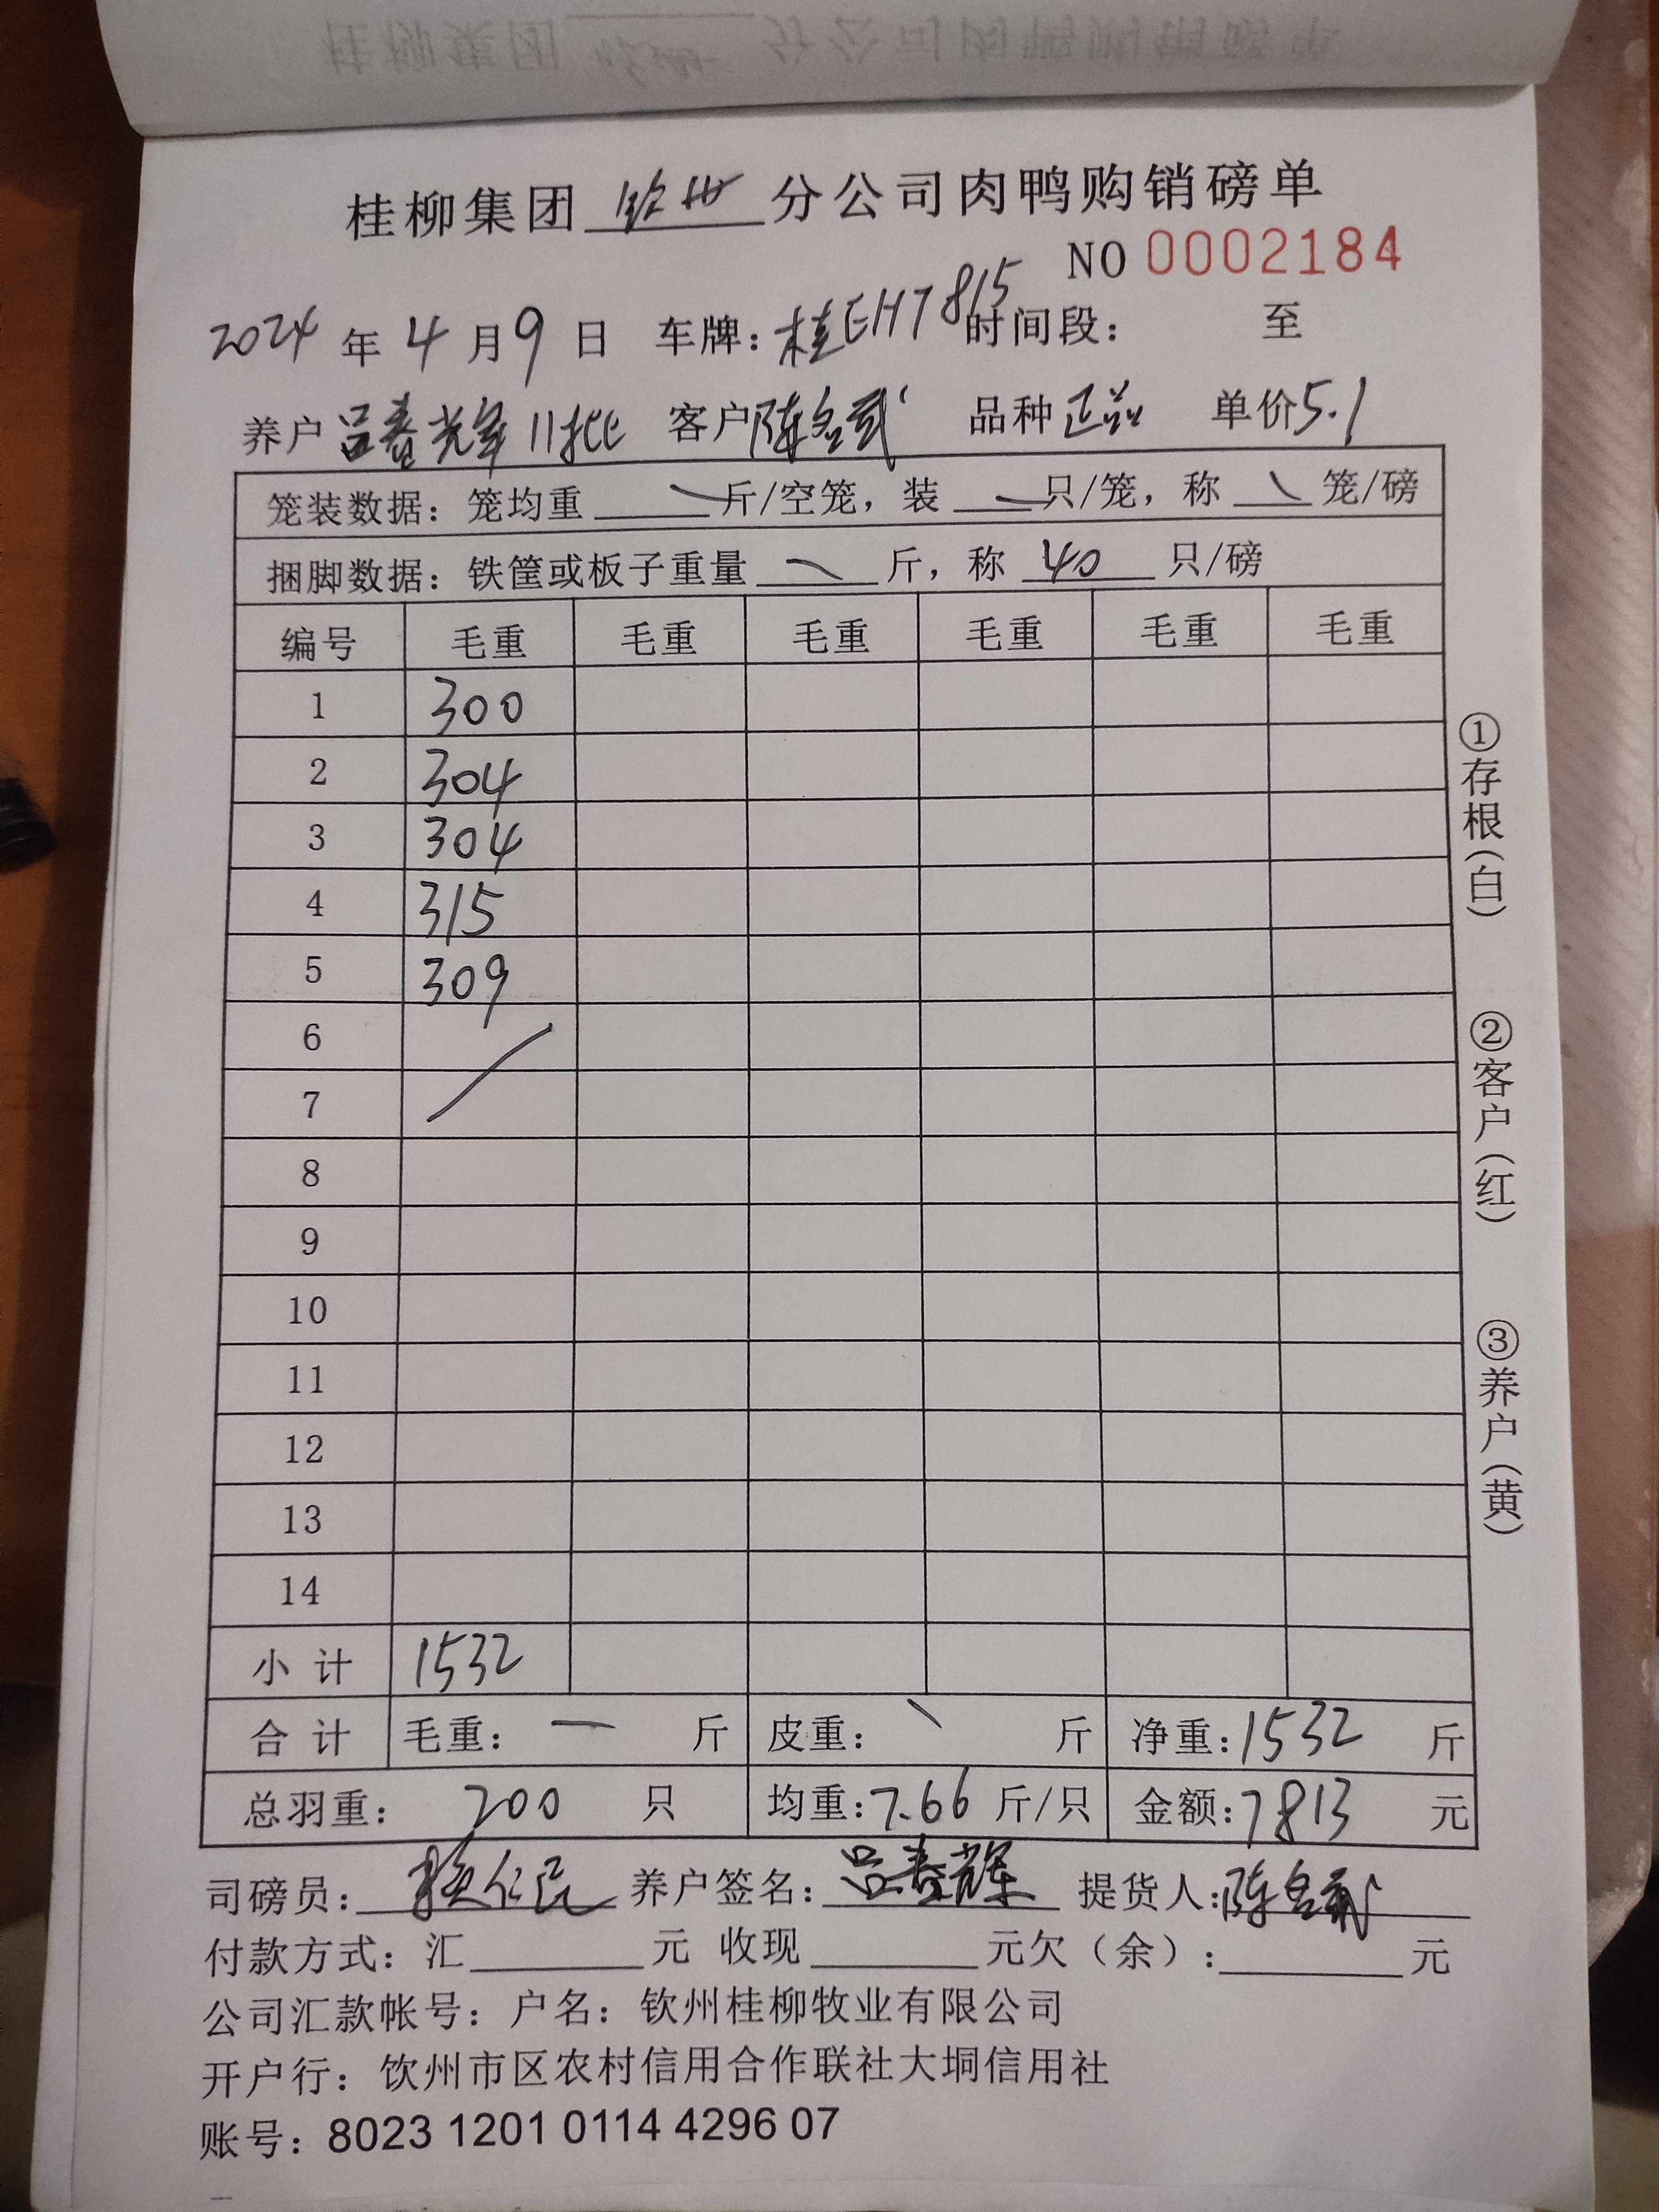 桂柳集团 钦州 分公司肉鸭购销磅单
NO 0002184
2024 年 4 月 9 日 车牌：桂EH7815 时间段： 至
养户 吕春光辉 11批 客户 陈名武 品种 正品 单价 5.1
笼装数据：笼均重 斤/空笼，装 只/笼，称 笼/磅
捆脚数据：铁筐或板子重量 斤，称 40 只/磅
编号 毛重 毛重 毛重 毛重 毛重 毛重
1 300
2 304
3 304
4 315
5 309
6
7
8
9
10
11
12
13
14
小计 1532
合计 毛重：一 斤 皮重： 斤 净重：1532 斤
总羽重： 200 只 均重：7.66 斤/只 金额：7813 元
司磅员： 仁民 养户签名：吕春辉 提货人：陈名武
付款方式：汇 元 收现 元欠（余）： 元
公司汇款帐号：户名：钦州桂柳牧业有限公司
开户行：饮州市区农村信用合作联社大垌信用社
账号：8023 1201 0114 4296 07
①存根（白）
②客户（红）
③养户（黄）